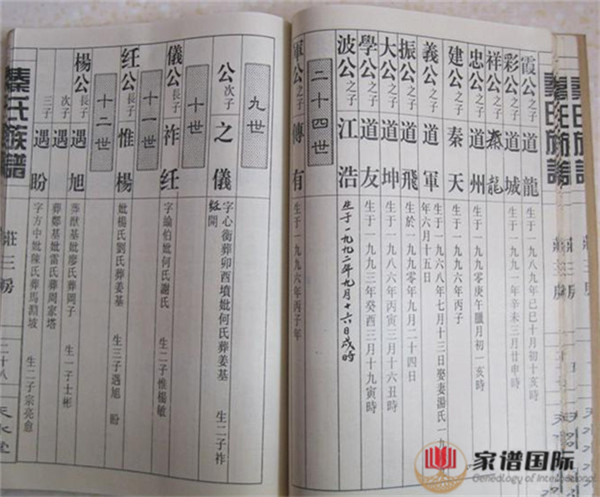 秦氏族譜 莊三房
霞公之子 道龍 生于一九八九年己巳十月初十亥時
彩公之子 道城 生于一九九一年辛未三月廿申時
祥公之子 燕龍
忠公之子 道州 生于一九九零庚午臘月初一亥時
建公之子 秦天 生于一九九六丙子
義公之子 道軍 生于一九六八年七月十三日娶妻湯氏一九
年六月十五日
振公之子 道飛 生於一九九零年九月二十四日
大公之子 道坤 生于一九八六年丙寅三月十六丑時
學公之子 道友 生于一九九三年癸酉三月十九寅時
波公之子 江浩 生于一九九二年九月十六日戌時
二十四世
軍公之子 傳有 生于一九九六年丙子年
九世
公次子 之儀 字心衡葬卯酉墳妣何氏葬姜基 生二子祚
紅開
十世
儀公長子 祚紅 字諭伯妣何氏謝氏 生二子惟楊敏
十一世
紅公長子 惟楊 妣楊氏劉氏葬姜基 生三子遇旭 盼
十二世
楊公長子 遇旭 葬猷基妣廖氏葬周子 生二子士彬
次子 遇 葬鄔基妣雷氏葬周家塔
三子 遇盼 字方中妣陳氏葬馬 坡 生二子宗亮
秦氏族譜 莊三房 二十八 天水堂
家谱国际
Genealogy of International